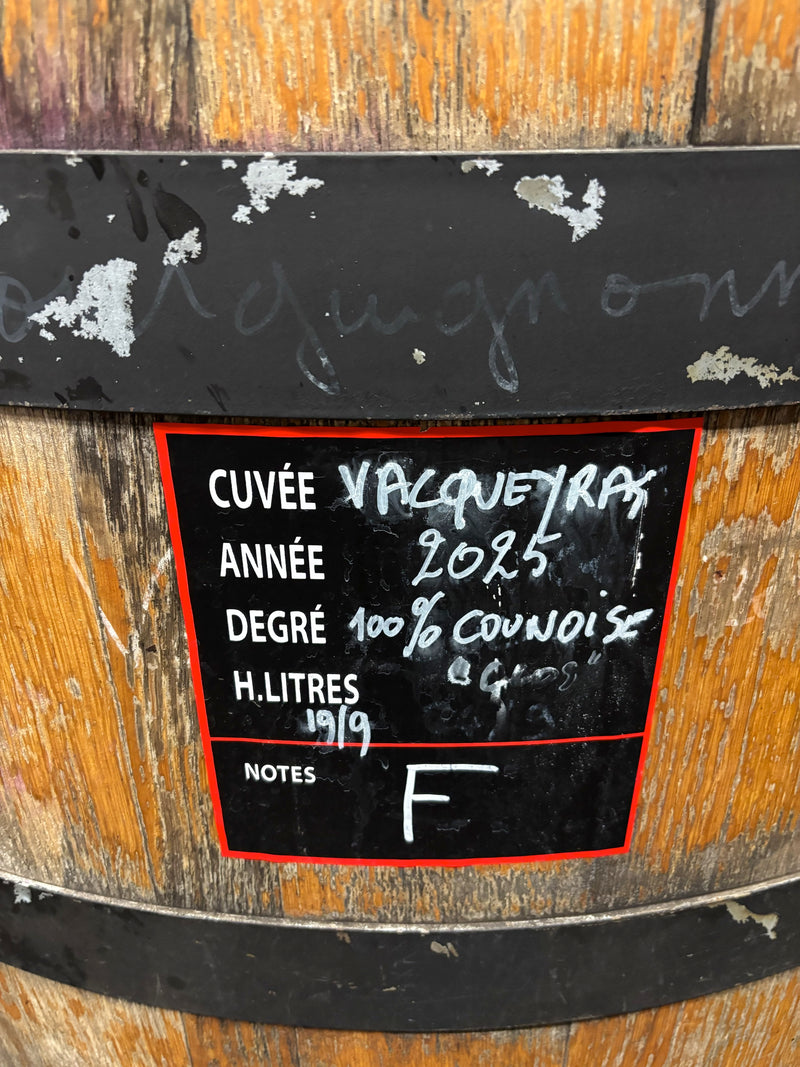 CUVÉE VACQUEYRAS
ANNÉE 2025
DEGRÉ 100% COUNOISE
H.LITRES
19/9
NOTES F